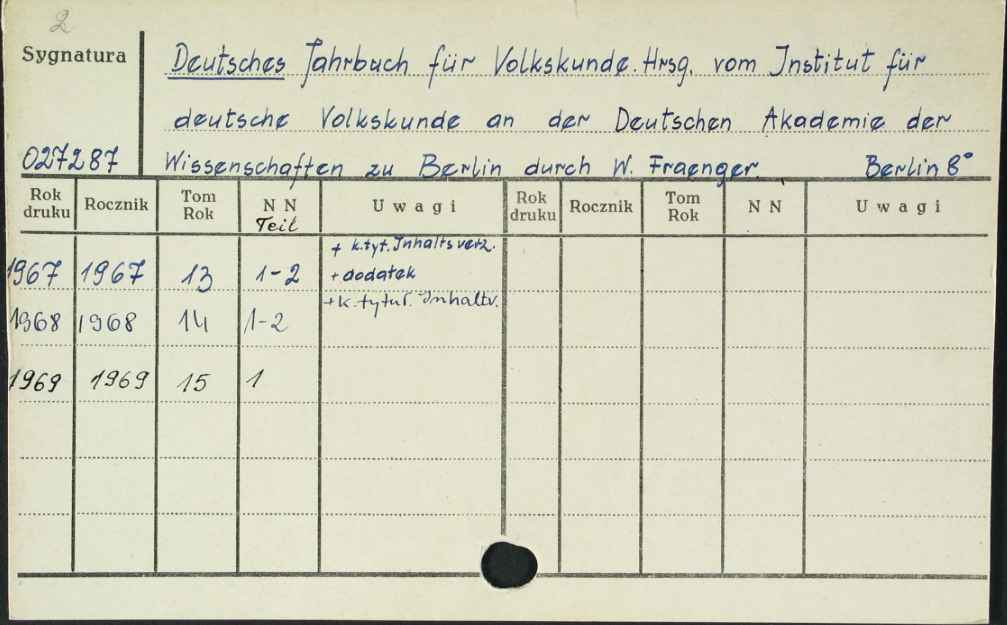 2
Sygnatura
Deutsches Jahrbuch für Volkskunde. Hrsg. vom Institut für
deutsche Volkskunde an der Deutschen Akademie der
027287 Wissenschaften zu Berlin durch W. Fraenger. Berlin 8°
Rok druku Rocznik Tom Rok N N Teil Uwagi Rok druku Rocznik Tom Rok N N Uwagi
+ k.tyt. Inhaltsverz.
1967 1967 13 1-2 + dodatek
+ k. tytuł. Inhaltv.
1968 1968 14 1-2
1969 1969 15 1